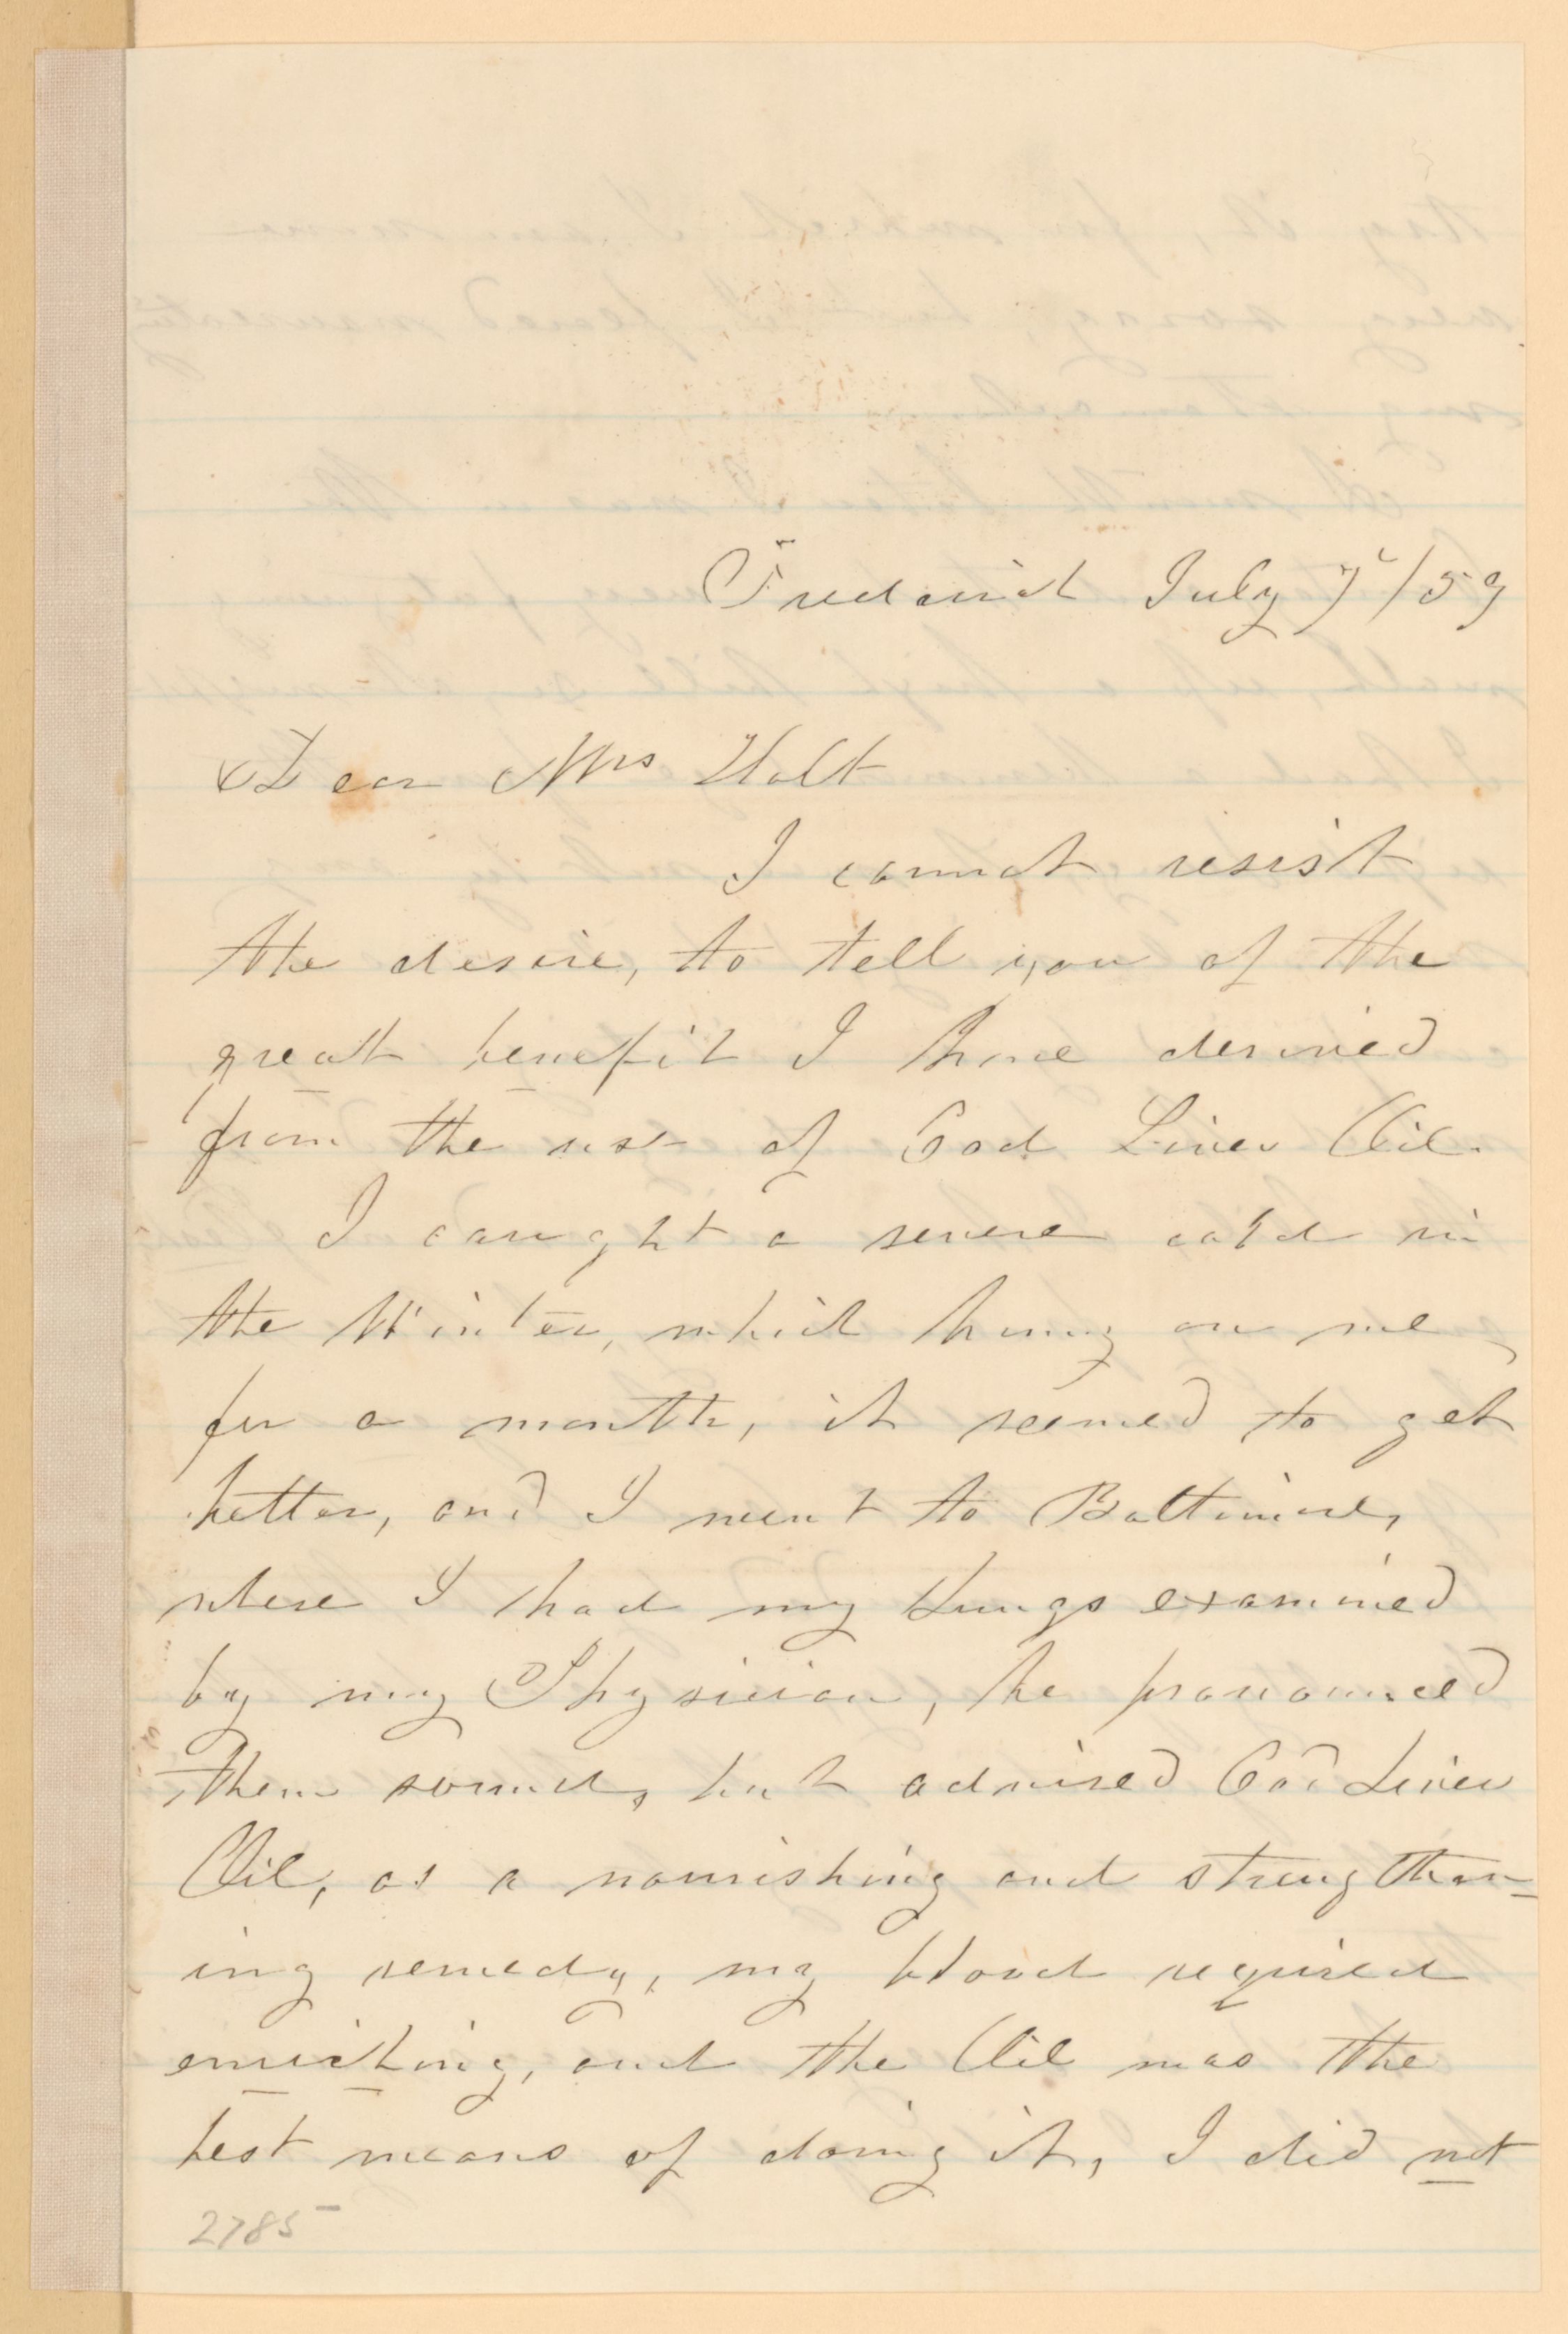 Frederick July 7th/59
Dear Mrs Holt
I cannot resist
the desire, to tell you of the
great benefit I have derived
from the use of Cod Liver Oil.
I caught a severe cold in
the Winter, which hung on me
for a month, it seemed to get
better, and I went to Baltimore,
where I had my Lungs examined
by my Physician, he pronounced
them sound, but advised Cod Liver
Oil, as a nourishing and strengthen=
ing remedy, my blood required
enriching, and the Oil was the
best means of doing it, I did not
2785